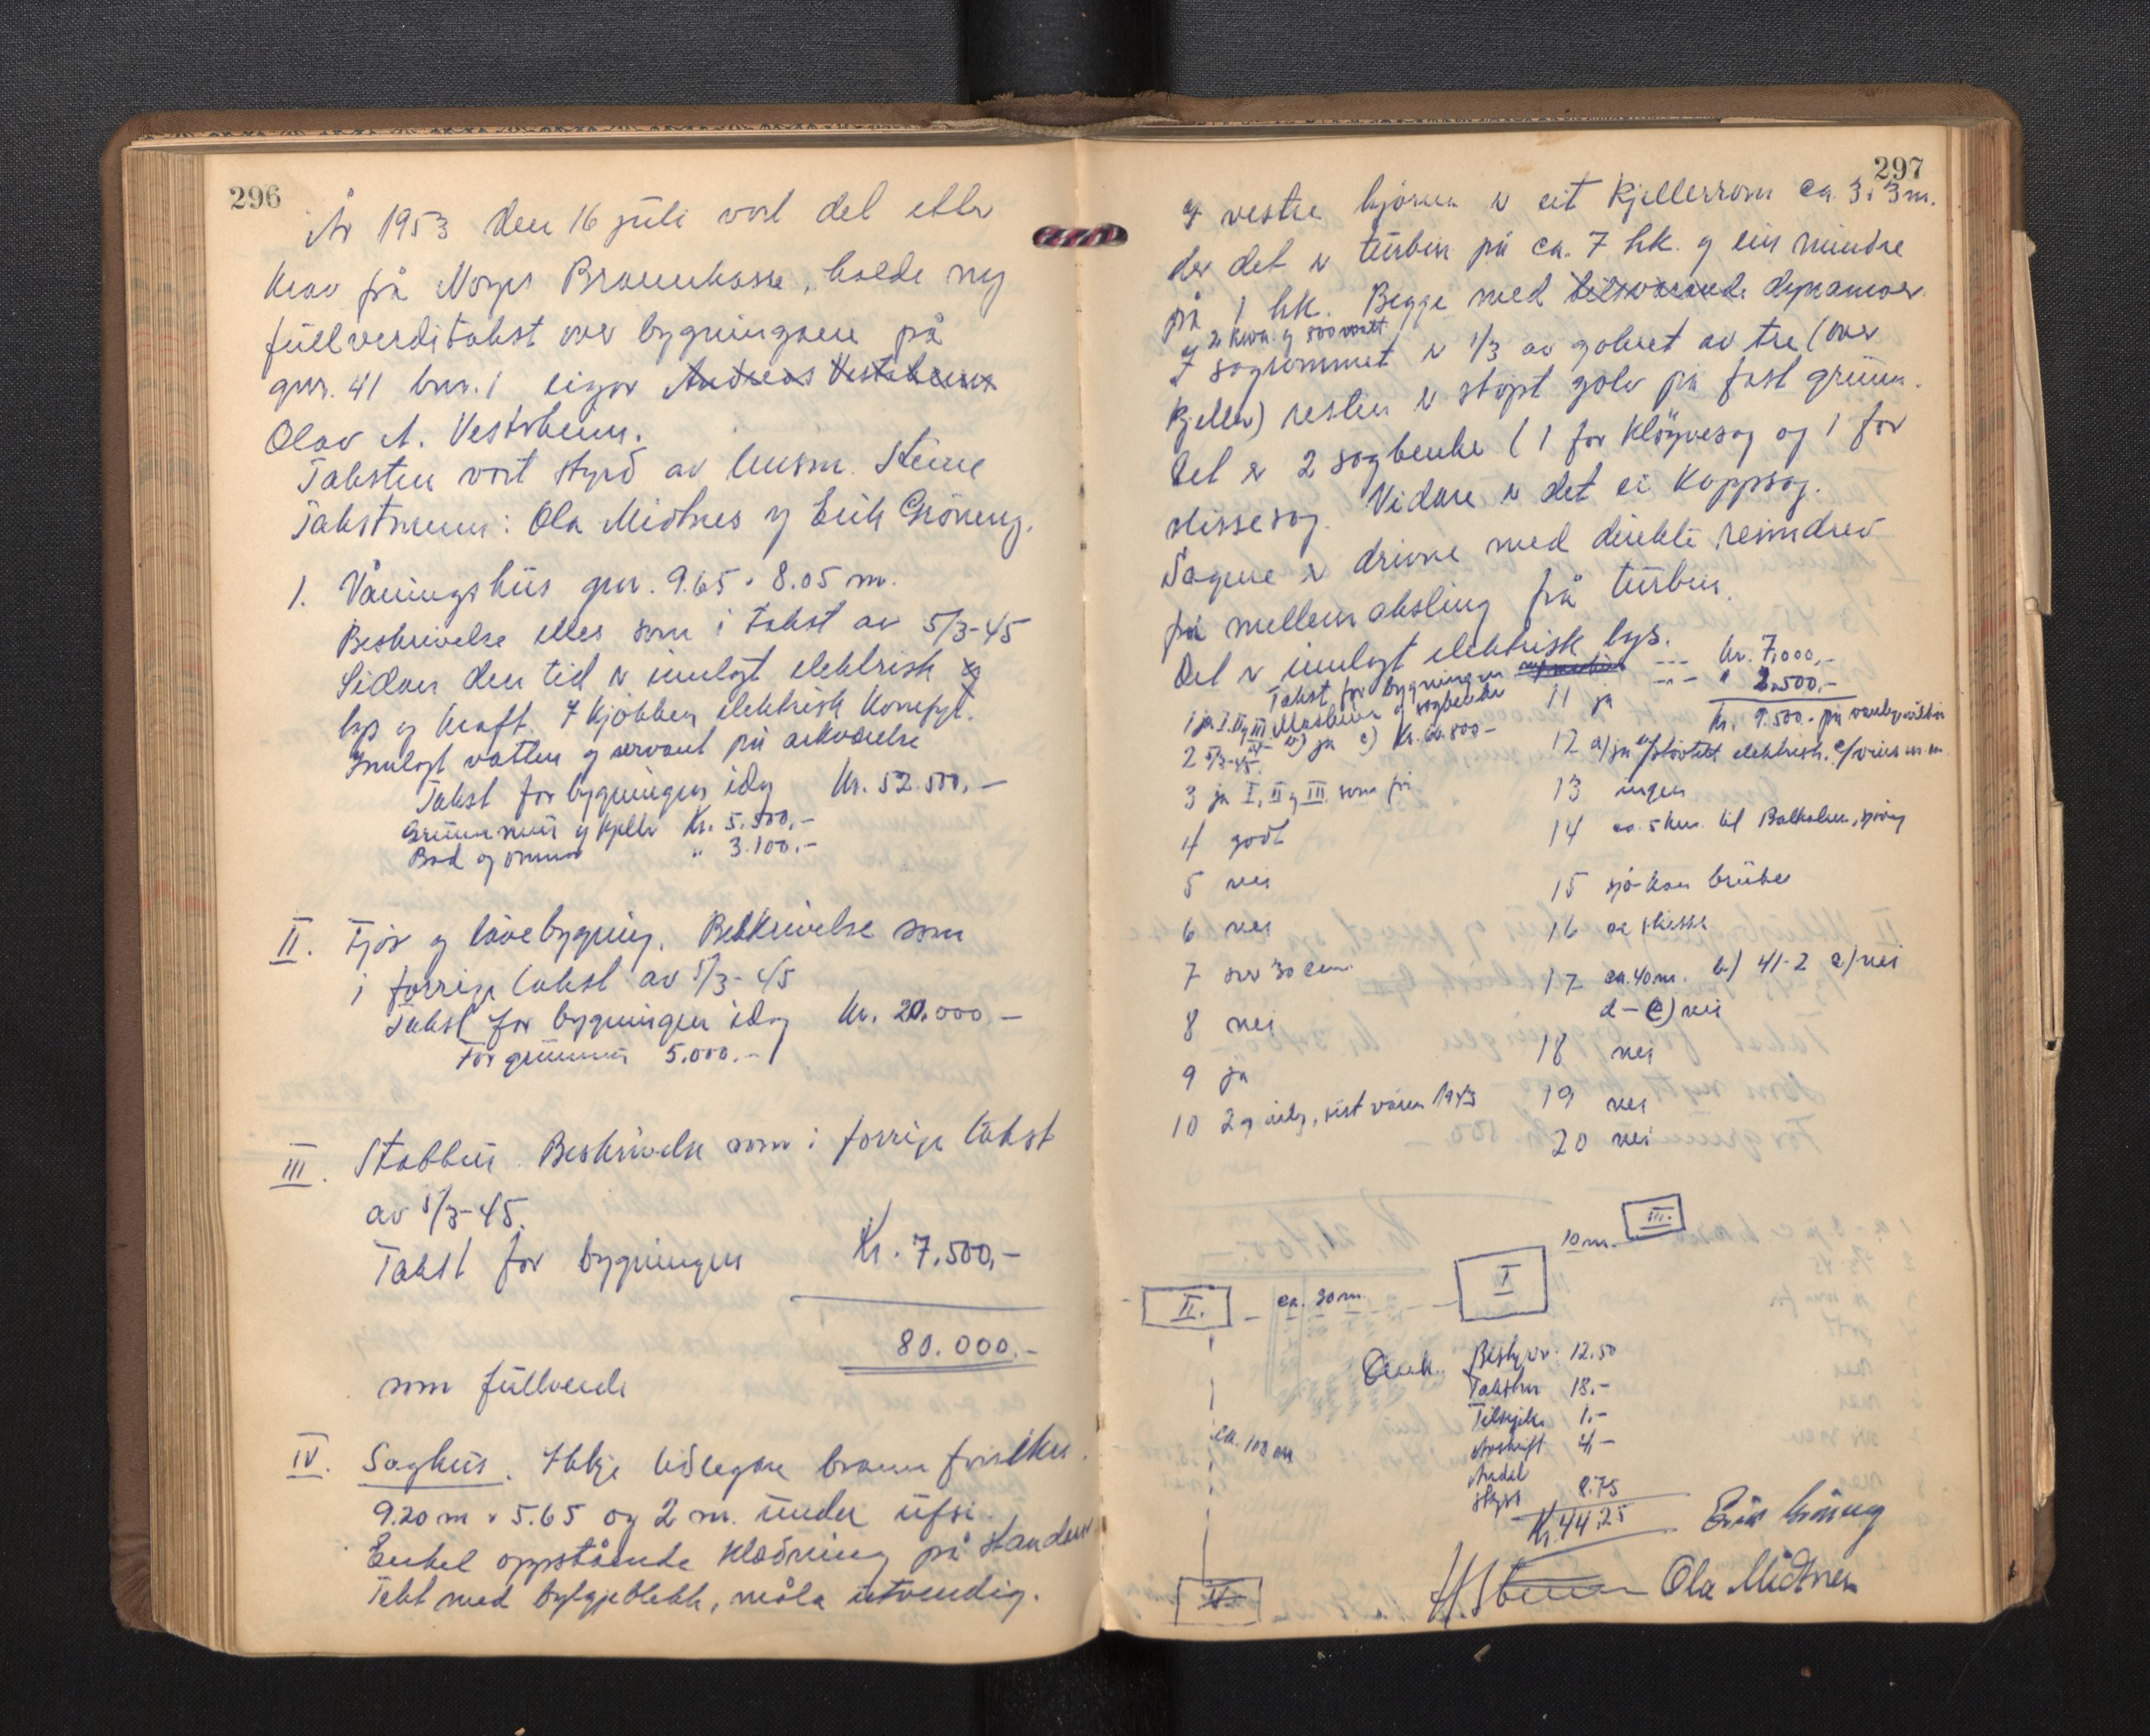 296
År 1953 den 16 juli vart det etter
krav frå Norges Brannkasse, halde ny
fullverditakst over bygningane på
gnr. 41 bnr. 1 eigar Andreas Vestrheim
Olav A. Vestrheim.
Taksten vart styrd av lensm. Steine
Takstmenn: Ola Midtnes og Erik Gröneng.
1. Våningshus gnr. 9.65 · 8.05 m.
Beskrivelse elles som i takst av 5/3-45
Sidan den tid er innlagt elektrisk og
lys og kraft. I kjökken elektrisk komfyr.
Innlagt vatten og servant på
Takst for bygningen idag kr. 52.500,-
Grunnmur og kjeller Kr. 5.500,-
Bad og " 3.100.-
II. Fjös og lövebygning. Beskrivelse som
i forrige takst av 5/3-45
Takst for bygningen idag kr. 20.000,-
For grunnmur 5.000.-
III. Stabbur. Beskrivelse som i forrige takst
av 5/3-45.
Takst for bygningen Kr. 7.500,-
80.000.-
som fullverdi
IV. Saghus. Ikkje tidlegare brannforsikra.
9.20 m · 5.65 og 2 m. under ufsi.
Enkel oppstående klædning på standarar
Tekt med bylgjeblekk, måla utvendig.
297
I vestre hjörne er eit kjellerrom ca. 3 · 3 m.
der det er turbin på ca. 7 hk. og ein mindre
på 1 hk. Begge med tilsvarande dynamoer
2 kwa. og 500 watt
I sagrommet er 1/3 av golvet av tre (over
kjeller) resten er stöpt golv på fast grunn.
Det er 2 sagbenker (1 for klöyvesag og 1 for
slissesag. Vidare er det ei kappsag.
Sagene er drivne med direkte reimdrev
frå mellomaksling frå turbin.
Det er innlagt elektrisk lys.
Takst for bygningen --- kr. 7.000,-
Maskiner og sagbenker --- " 2.500,-
Kr. 9.500.-
1 ja I, II og III b) ja c) Kr. 60.800-
2 5/3-45.
3 ja I, II og III som för
4 godt
5 nei
6 nei
7 over 30 cm.
8 nei
9 ja
10 2 g årleg, sist våren 1953
11 ja
12 a) ja elektrisk.
13 ingen
14 ca. 5 km. til Balholm,
15 sjö kan brukes
16 se skisse
17 ca. 40 m. b) 41-2 c) nei
d-e) nei
18 nei
19 nei
20 nei
III.
10 m.
I
II.
ca. 30 m.
ca. 100 m
IV
Omk. Bestyrer 12.50
Takstm 18.-
1.-
Avskrift 4.-
Andel
skyss 8.75
Kr. 44.25
Erik Gröneng
H. Steine Ola Midtnes